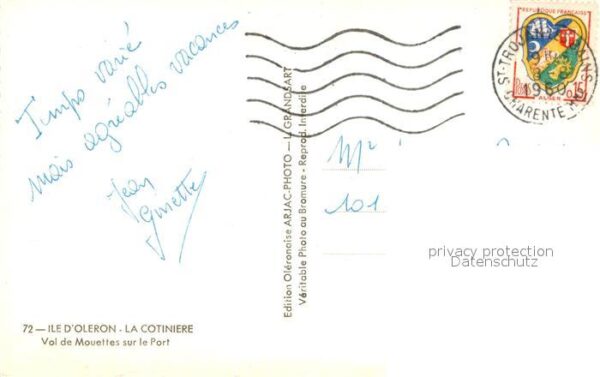 Temps varié
mais agréables vacances
Jean
Ginette
72 — ILE D'OLERON - LA COTINIERE
Vol de Mouettes sur le Port
Edition Oléronaise ARJAC-PHOTO — L. GRANDSART
Véritable Photo au Bromure - Reprod. Interdite
REPUBLIQUE FRANÇAISE
ALGER
1960
CHARENTE
Mr
101
privacy protection
Datenschutz